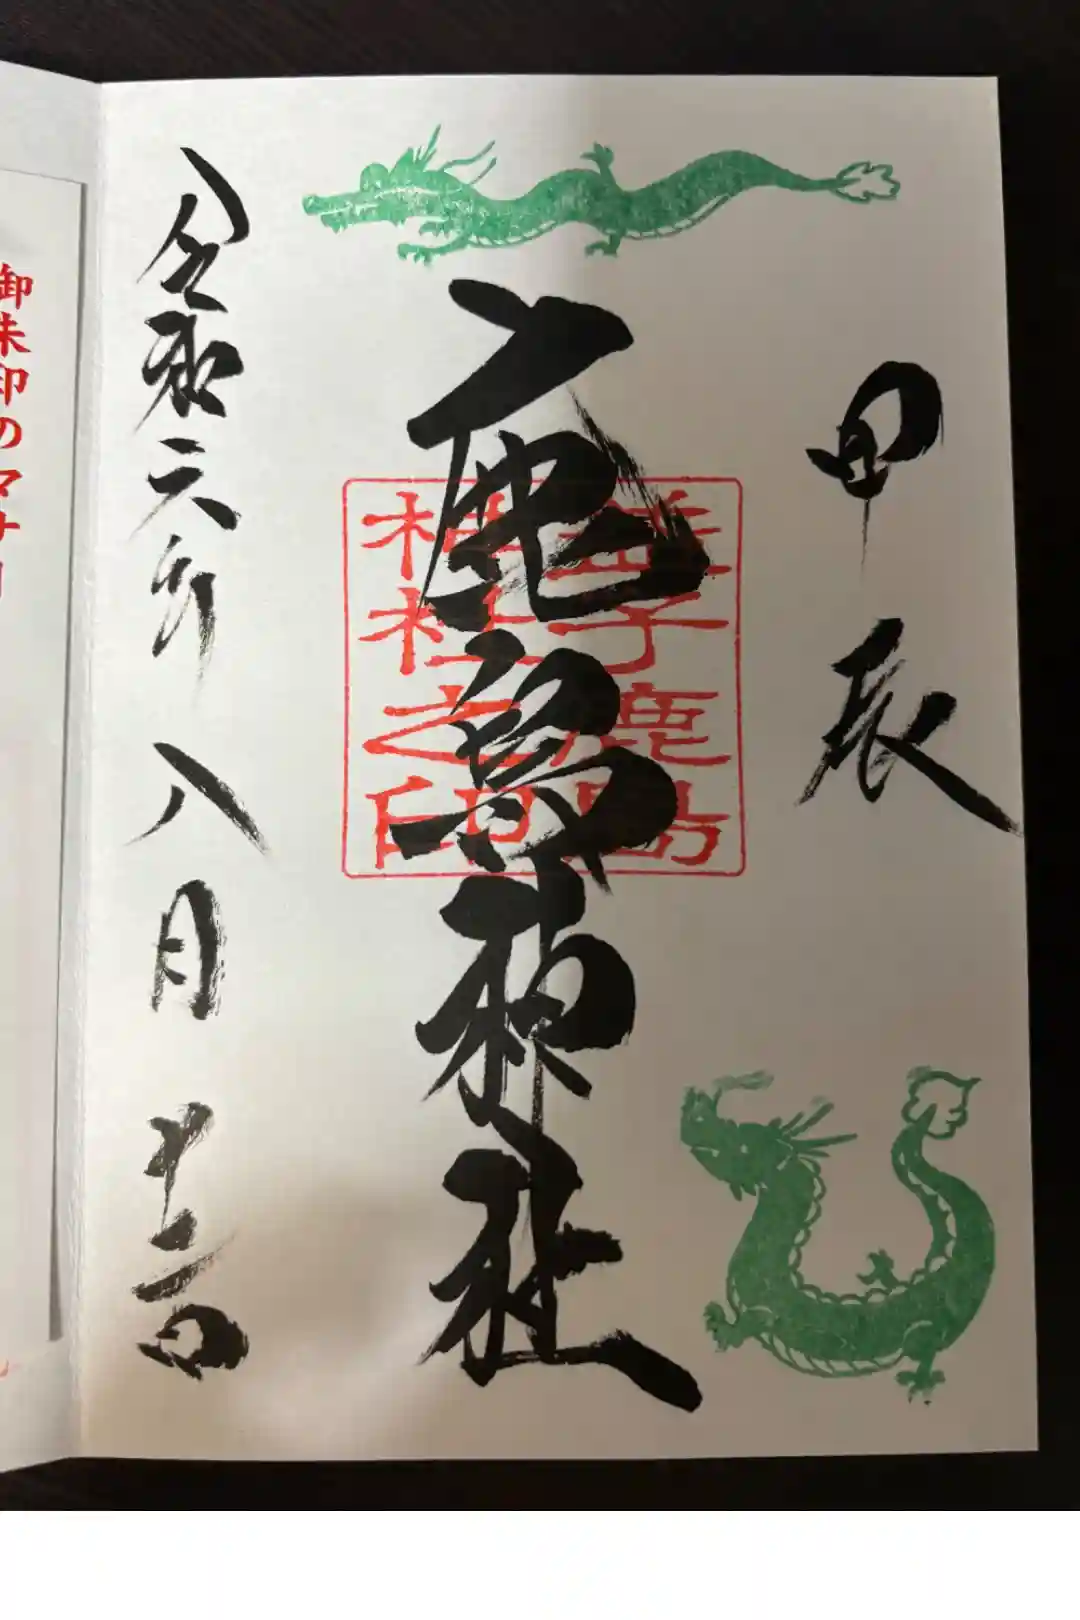 甲辰
鹿島神社
益子鹿島
神社之印
令和六年八月
御朱印のマナー